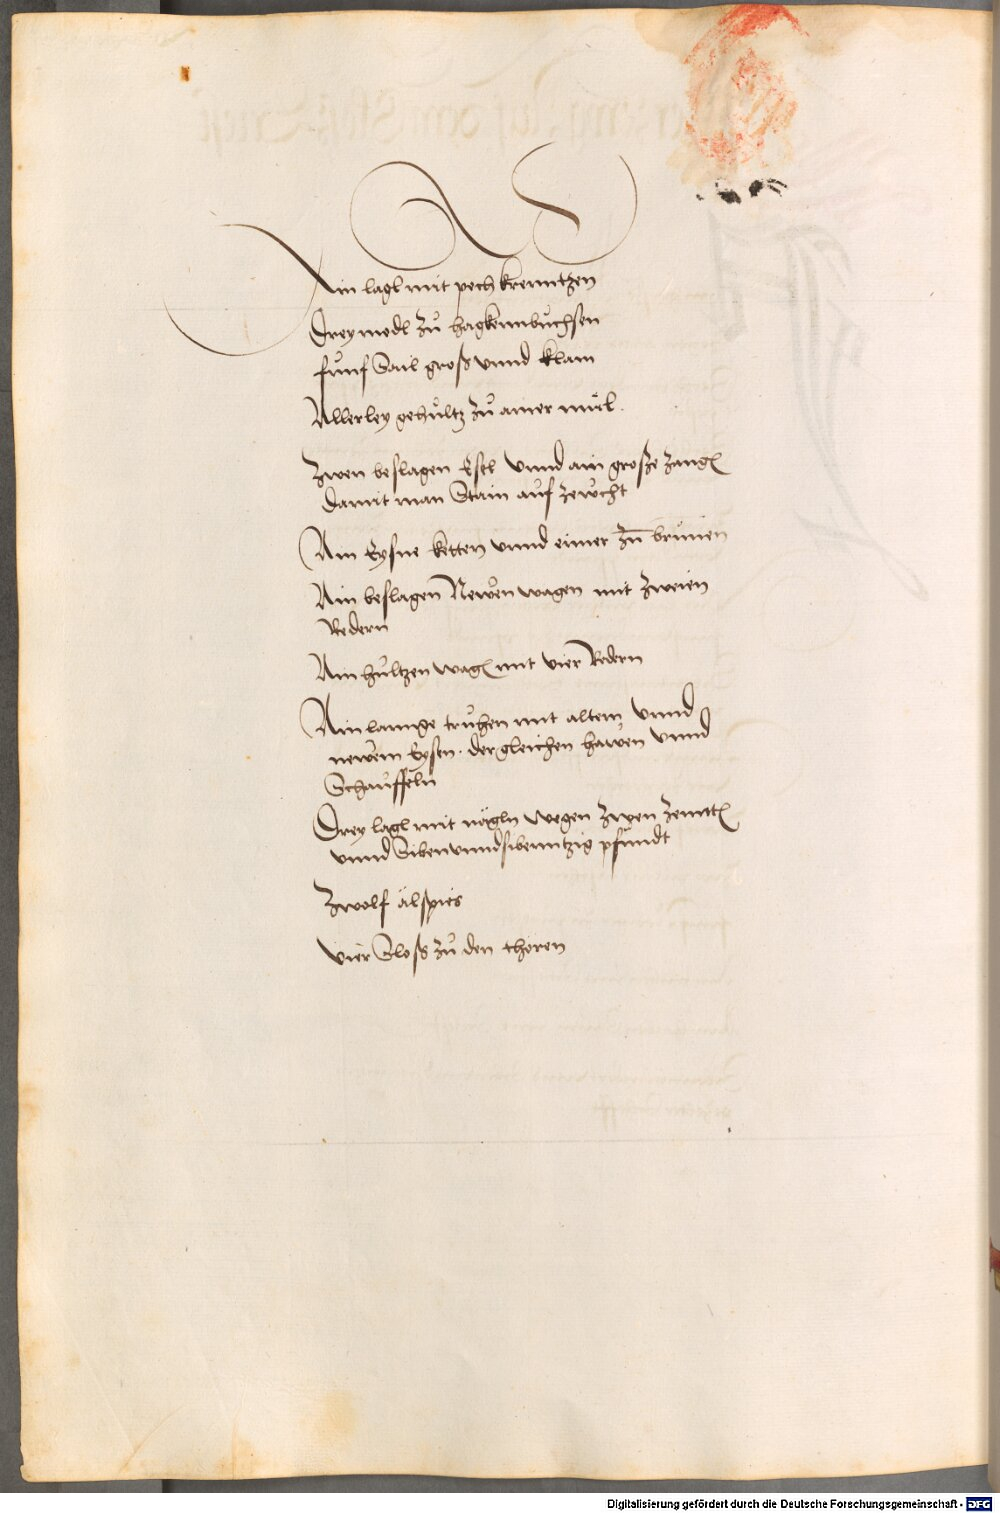 Ain lagl mit pech krenntzen
Drey modl zů hagkennbůchsen
funf Sail groß vnnd klain
Allerley gehůltz zů ainer můl.
Zwen beslagen Esel vnnd ain große zang
damit man Stain aůf zeůcht
Ain Eysne ketten vnnd eimer zu brůnnen
Ain beslagen Newen wagen mit zweien
Redern
Ain hůltzen wagen mit vier Redern
Ain lannge truhen mit altem vnnd
newem Eysen. dergleichen hawen vnnd
Schaůffeln
Drey lagl mit någln wegen zwen zennten
vnnd Sibenvnndsibenntzig pfundt
Zwelf ålspies
Vier Sloß zů den thoren
Digitalisierung gefördert durch die Deutsche Forschungsgemeinschaft - DFG